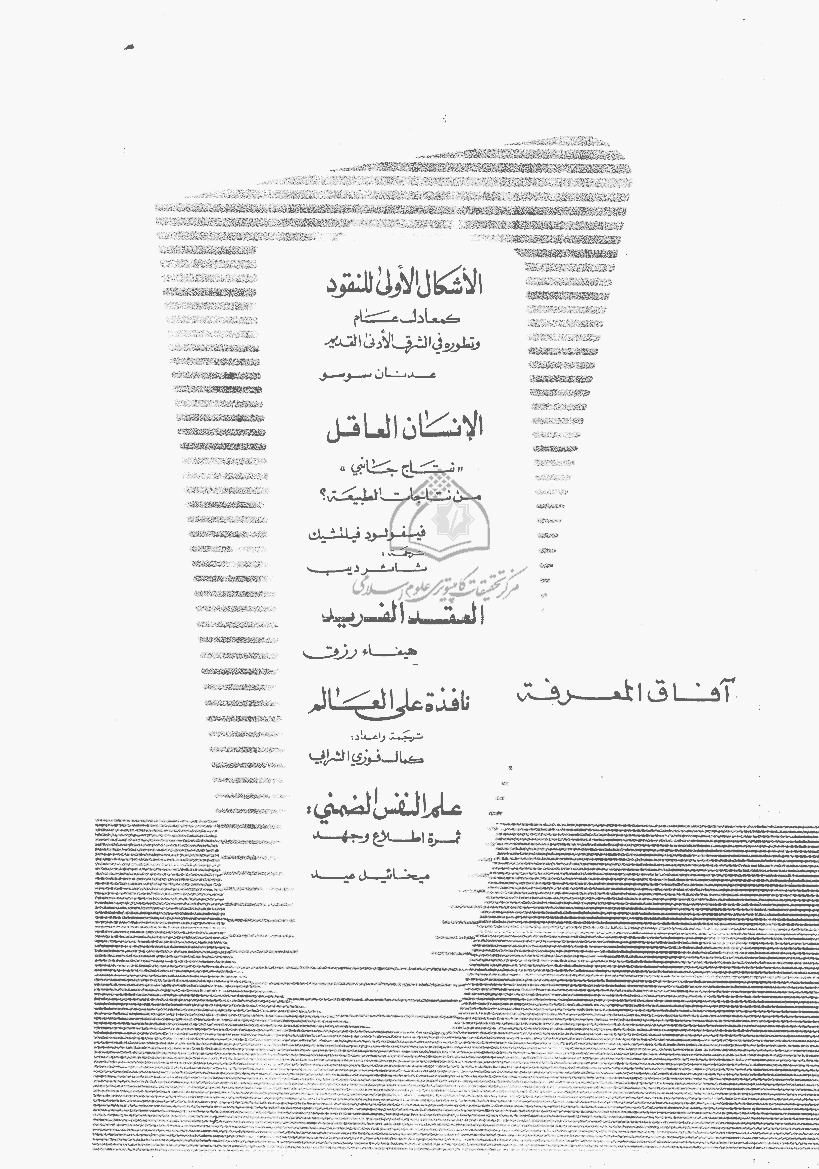 الأشكال الأولى للنقود
كمعادل عام
وتطوره في الشرق الأدنى القديم
عدنان سوسو
الإنسان العاقل
« نتاج جانبي »
من نتاجات الطبيعة؟
فيلتشيك
ثائر ديب
مركز تحقيقات كامپيوتری علوم اسلامی
العقد الفريد
هيفاء رزق
آفاق المعرفة
نافذة على العالم
ترجمة واعداد:
كمال فوزي الشرابي
علم النفس الضمني:
ثمرة اطلاع وجهد
ميخائيل عيد